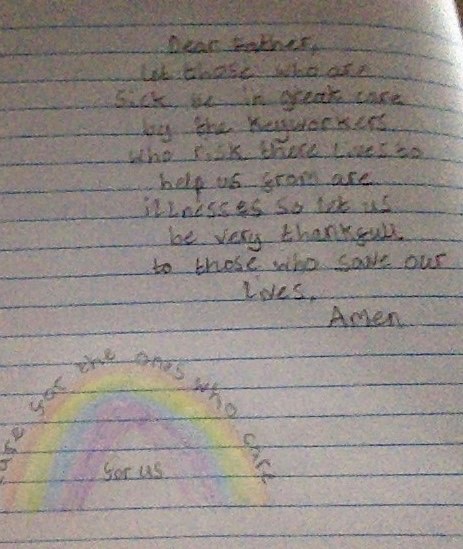 Dear Father,
let those who are
sick be in great care
by the keyworkers
who risk there lives to
help us from are
illnesses so let us
be very thankfull
to those who save our
lives.
Amen
care for the ones who care
for us